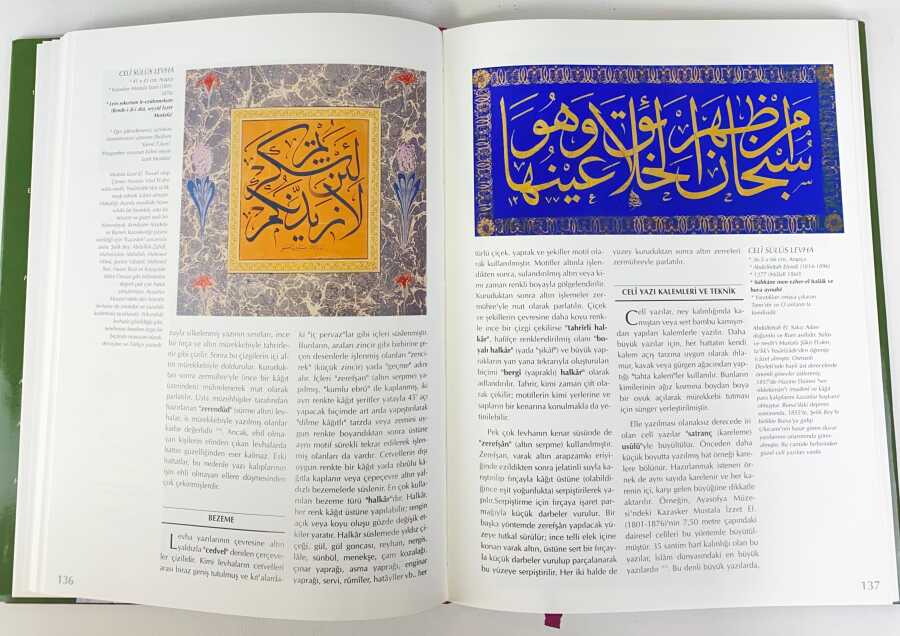 CELÎ SÜLÜS LEVHA
* 41 x 41 cm, Arapça
* Kazasker Mustafa İzzet (1801-
1876)
لئن شكرتم
لأزيدنكم
zayla silkelenmiş yazının sınırları, ince
bir fırça ve altın mürekkebiyle tahrirle-
nir gibi çizilir. Sonra bu çizgilerin içi al-
tın mürekkebiyle doldurulur. Kuruduk-
tan sonra zermühre'yle ince bir kâğıt
üzerinden mührelenerek mat olarak
parlatılır. Usta müzehhipler tarafından
hazırlanan "zerendûd" (sürme altın) lev-
halar, is mürekkebiyle yazılmış olanlar
kadar değerlidir. Ancak, ehil olma-
yan kişilerin elinden çıkan levhalarda
hattın güzelliğinden eser kalmaz. Eski
hattatlar, bu nedenle yazı kalıplarının
işin ehli olmayan ellere düşmesinden
çok çekinmişlerdir.
BEZEME
Levha yazılarının çevresine altın
yaldızla "cedvel" denilen çerçeve-
ler çizilidir. Kimi levhaların cetvelleri
arası biraz geniş tutulmuş ve kıt'alarda-
ki "iç pervaz"lar gibi içleri süslenmiştir.
Bunların, araları zincir gibi birbirine ge-
çen desenlerle işlenmiş olanları "zenci-
rek" (küçük zincir) yada "geçme" adını
alır. İçleri "zerefşan" (altın serpme) ya-
pılmış, "kumlu ebrû" ile kaplanmış, iki
ayrı renkte kâğıt şeritler yatayla 45° açı
yapacak biçimde art arda yapıştırılarak
"dilme kâğıtlı" tarzda veya zemini uy-
gun renkte boyandıktan sonra üstüne
aynı motif sürekli tekrar edilerek işlen-
miş olanları da vardır. Cetvellerin dışı
uygun renkte bir kâğıt yada ebrûlu kâ-
ğıtla kaplanır veya çepeçevre altın yal-
dızlı bezemelerle süslenir. En çok kulla-
nılan bezeme türü "halkâr"dır. Halkâr,
her renk kâğıt üstüne yapılabilir; rengin
açık veya koyu oluşu gözde değişik et-
kiler yaratır. Halkâr süslemede yıldız çi-
çeği, gül, gül goncası, reyhan, nergis,
lâle, sünbül, menekşe, çam kozalağı,
çınar yaprağı, asma yaprağı, enginar
yaprağı, servi, rûmîler, hatâyîler vb., her
136
سبحان من ظهر الخلائق وهو عينها
١٢٧٧
türlü çiçek, yaprak ve şekiller motif ola-
rak kullanılmıştır. Motifler altınla işlen-
dikten sonra, sulandırılmış altın veya ki-
mi zaman renkli boyayla gölgelendirilir.
Kuruduktan sonra altın işlemeler zer-
mühre'yle mat olarak parlatılır. Çiçek
ve şekillerin çevresine daha koyu renk-
le ince bir çizgi çekilirse "tahrirli hal-
kâr", hafifçe renklendirilmiş olanı "bo-
yalı halkâr" yada "şikâf" ve büyük yap-
rakların yan yana tekrarıyla oluşturulan
biçimi "bergî" (yapraklı) halkâr" olarak
adlandırılır. Tahrir, kimi zaman çift ola-
rak çekilir; motiflerin kimi yerlerine ve
sapların bir kenarına konulmakla da ye-
tinilebilir.
Pek çok levhanın kenar süsünde de
"zerefşân" (altın serpme) kullanılmıştır.
Zerefşan, varak altın arapzamkı eriyi-
ğinde ezildikten sonra jelatinli suyla ka-
rıştırılıp fırçayla kâğıt üstüne (olabildi-
ğince eşit yoğunluktai serpiştirilerek ya-
pılır.Serpiştirme için fırçaya işaret par-
mağıyla küçük darbeler vurulur. Bir
başka yöntemde zerefşân yapılacak yü-
zeye tutkal sürülür; ince telli elek içine
konan varak altın, üstüne sert bir fırçay-
la küçük darbeler vurulup parçalanarak
bu yüzeye serpiştirilir. Her iki halde de
yüzey kuruduktan sonra altın zerreleri
zermühreyle parlatılır.
CELÎ YAZI KALEMLERİ VE TEKNİK
Celî yazılar, ney kalınlığında ka-
mıştan veya sert bambu kamışın-
dan yapılan kalemlerle yazılır. Daha
büyük yazılar için, her hattatın kendi
kalem açış tarzına uygun olarak ıhla-
mur, kavak veya gürgen ağacından yap-
tığı "tahta kalem"ler kullanılır. Bunların
kimilerinin ağız kısmına boydan boya
bir oyuk açılarak mürekkebi tutması
için sünger yerleştirilmiştir.
Elle yazılması olanaksız derecede iri
olan celî yazılar "satranç (karelemi)
usûlü"yle büyütülür. Önceden daha
küçük boyutta yazılmış hat örneği kare-
lere bölünür. Hazırlanmak istenen ör-
nek de aynı sayıda karelenir ve her ka-
renin içi, karşı gelen büyüğüne dikkatle
aktarılır. Örneğin, Ayasofya Müze-
si'ndeki Kazasker Mustafa İzzet Ef.
(1801-1876)'nin 7,50 metre çapındaki
dairesel celîleri bu yöntemle büyütül-
müştür. 35 santim harf kalınlığı olan bu
yazılar, İslâm dünyasındaki en büyük
yazılardır. Bu denli büyük yazılarda,
CELÎ SÜLÜS LEVHA
* 36.5 x 66 cm, Arapça
* Abdülfettah Efendi (1814-1896)
* 1277 (Milâdî 1860)
137